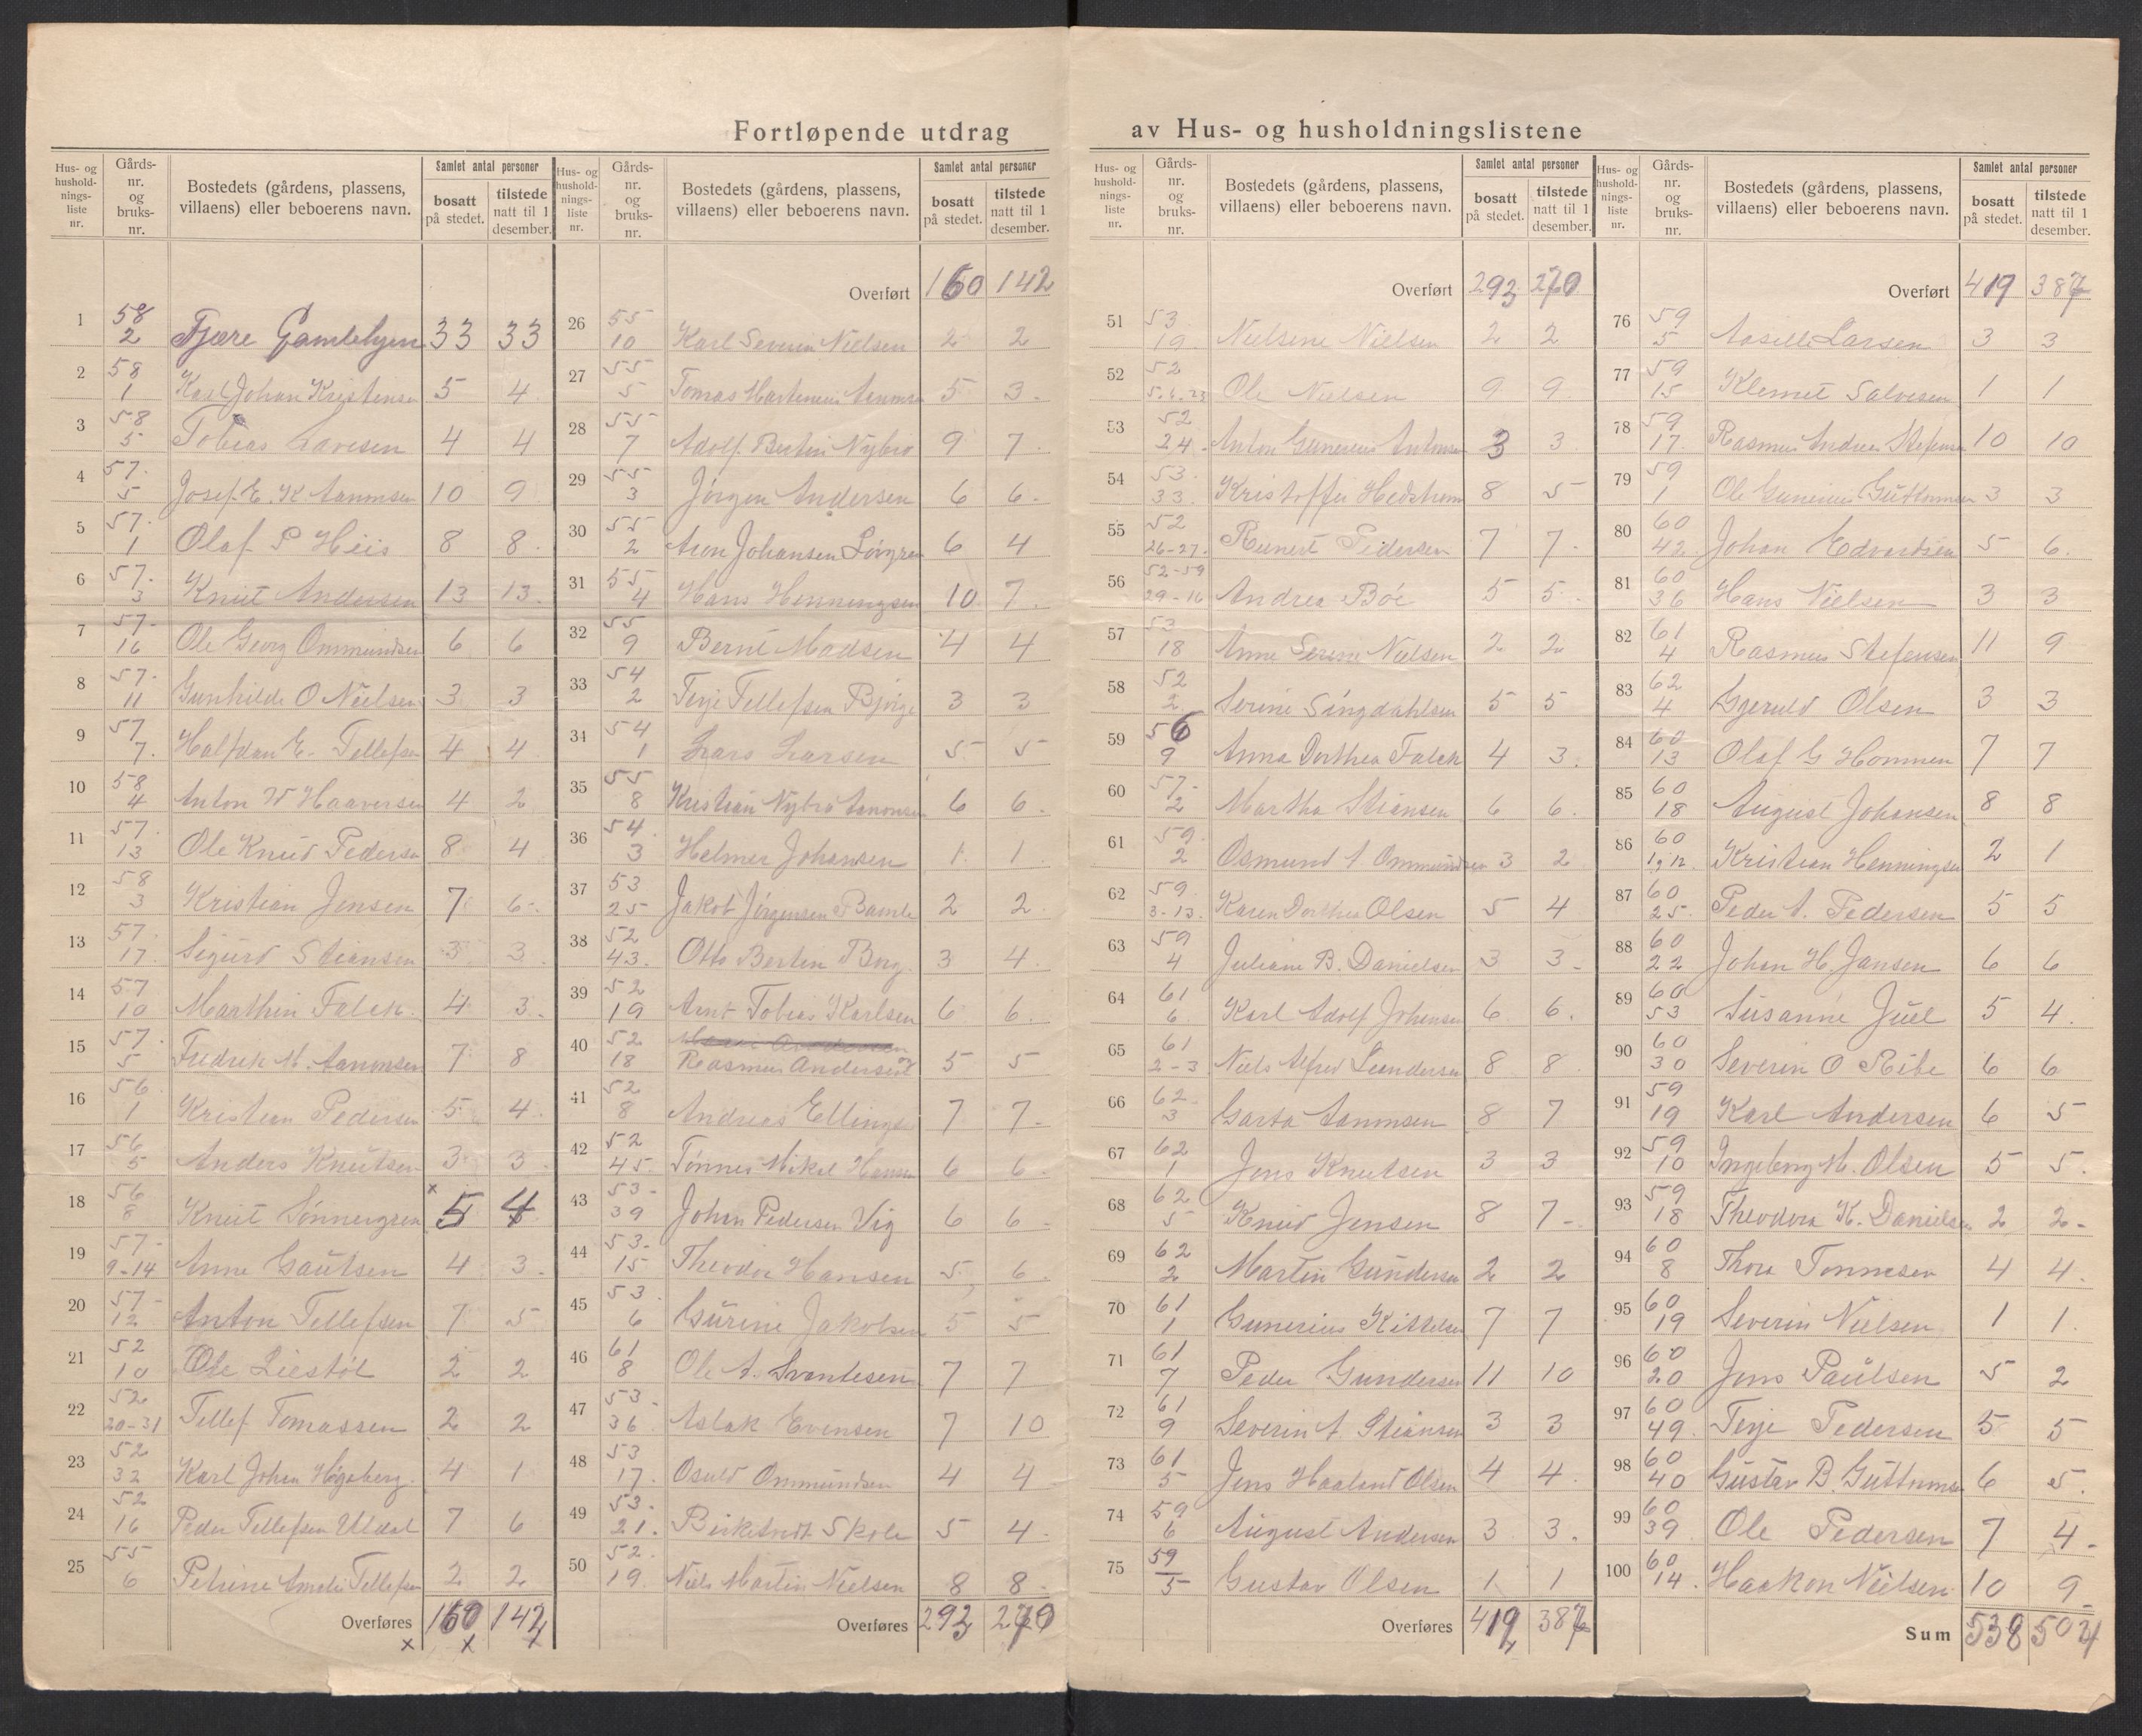 Fortløpende utdrag av Hus- og husholdningslistene
Hus- og husholdnings-liste nr. | Gårds-nr. og bruks-nr. | Bostedets (gårdens, plassens, villaens) eller beboerens navn. | Samlet antal personer | bosatt på stedet. | tilstede natt til 1 desember.
1 58 2 Fjære Gamlehjem 33 33
2 58 1 Karl Johan Kristensen 5 4
3 58 5 Tobias Larsen 4 4
4 57. 5 Josef E. K. Aanonsen 10 9
5 57. 1 Olaf P Heiis 8 8
6 57. 3 Knut Andersen 13 13
7 57 16 Ole Georg Ommundsen 6 6
8 57. 11 Gunhilde O Nielsen 3 3
9 57 7. Halfdan E. Tellefsen 4 4
10 58 4 Anton W Haaversen 4 2
11 57. 13 Ole Knud Pedersen 8 4
12 58 3 Kristian Jensen 7 6
13 57. 17. Sigurd Stiansen 3 3
14 57 10 Marthin Falck 4 3
15 57. 5 Fredrik M. Aanonsen 7 8
16 56 1 Kristian Pedersen 5 4
17 56 5 Anders Knutsen 3 3
18 56 8 Knut Sønnergren x 5 4
19 57 9-14 Anne Gautsen 4 3
20 57 12 Anton Tellefsen 7 5
21 52 10 Ole Liestøl 2 2
22 52 20-31 Tellef Tomassen 2 2
23 52 32 Karl Johan Høgeberg 4 1
24 52 16 Peder Tellefsen Uldal 7 6
25 55 6 Petrine Amalie Tellefsen 2 2
Overføres 160 142
x x x
Overført 160 142
26 55 10 Karl Severin Nielsen 2 2
27 55 5 Tomas Martenius Aanonsen 5 3
28 55 7 Adolf Bertin Nybro 9 7
29 55 3 Jørgen Andersen 6 6
30 55 2 Aron Johansen Løvgren 6 4
31 55 4 Hans Henningsen 10 7
32 55 9 Bernt Madsen 4 4
33 54 2 Terje Tellefsen Bjørge 3 3
34 54 1 Lars Larsen 5 5
35 55 8 Kristian Nybro Aanonsen 6 6
36 54. 3 Helmer Johansen 1 1
37 53 25 Jakob Jørgensen Bamle 2 2
38 52 43. Otto Bertin Borg 3 4
39 52 19 Arnt Tobias Karlsen 6 6
40 52 18 Rasmus Andersen 5 5
41 52 8 Andreas Ellingsen 7 7
42 52 45 Tønnes Mikal Hansen 6 6
43 53 39 Johan Pedersen Vig 6 6
44 53. 15 Theodor Hansen 5 6
45 53. 6 Gurine Jakobsen 5 5
46 61 8 Ole A. Svendesen 7 7
47 53. 36 Aslak Evensen 7 10
48 53 17. Osuld Ommundsen 4 4
49 53. 21. Birketvedt Skole 5 4
50 52. 19. Niels Martin Nielsen 8 8
Overføres 293 270
Overført 293 270
51 53 19 Nielsine Nielsen 2 2
52 52 5.6.23 Ole Nielsen 9 9
53 52 24 Anton Gunerius Antonsen 3 3
54 53. 33. Kristoffer Hedstrøm 8 5
55 52 26-27. Reinert Pedersen 7 7
56 52-59 29-16 Andrea Bøe 5 5
57 53 18 Anne Serine Nielsen 2 2
58 52 2 Serine Singdahlsen 5 5
59 56 9 Anna Dorthea Falck 4 3
60 57. 2 Martha Stiansen 6 6
61 59. 2 Osmund A Ommundsen 3 2
62 59. 3-13. Karen Dorthea Olsen 5 4
63 59 4 Juliane B. Danielsen 3 3
64 61 6 Karl Adolf Johansen 6 6
65 61 2-3 Niels Alfred Leandersen 8 8
66 62 3 Garta Aanonsen 8 7
67 62 1 Jens Knutsen 3 3
68 62 5 Knud Jensen 8 7
69 62 2 Martin Gundersen 2 2
70 61 1 Gunerius Kittelsen 7 7
71 61 7 Peder Gundersen 11 10
72 61 9 Severin A. Stiansen 3 3
73 61 5 Jens Haaland Olsen 4 4
74 59 6 August Andersen 3 3
75 59 5 Gustav Olsen 1 1
Overføres 419 387
Overført 419 387
76 59 5 Aasille Larsen 3 3
77 59 15 Klemet Salvesen 1 1
78 59 17. Rasmus Andreas Stefensen 10 10
79 59 1 Ole Gunerius Guttormsen 3 3
80 60 42 Johan Edvardsen 5 6
81 60 36 Hans Nielsen 3 3
82 61 4 Rasmus Stefensen 11 9
83 62 4 Gjeruld Olsen 3 3
84 60 13 Olaf G Hommen 7 7
85 60 18 August Johansen 8 8
86 60 Kristian Henningsen 2 1
87 60 25. Peder A. Pedersen 5 5
88 60 22 Johan H. Jansen 6 6
89 60 53 Susanne Juel 5 4
90 60 30 Severin O Ribe 6 6
91 59 19 Karl Andersen 6 5
92 59 10 Ingeborg M. Olsen 5 5
93 59 18 Theodora K. Danielsen 2 2
94 60 8 Thora Tønnesen 4 4
95 60 19 Severin Nielsen 1 1
96 60 20 Jens Paulsen 5 2
97 60 49. Terje Pedersen 5 5
98 60 40 Gustav B. Guttormsen 6 5
99 60 39 Ole Pedersen 7 4
100 60 14 Haakon Nielsen 10 9
Sum 538 504